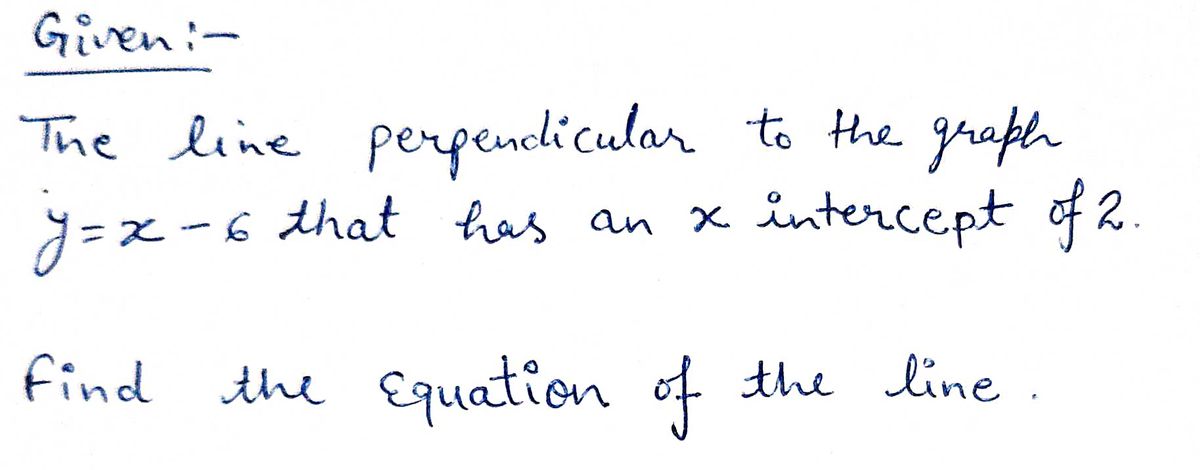 Given:-
The line perpendicular to the graph
y=x-6 that has an x intercept of 2.
Find the Equation of the line.